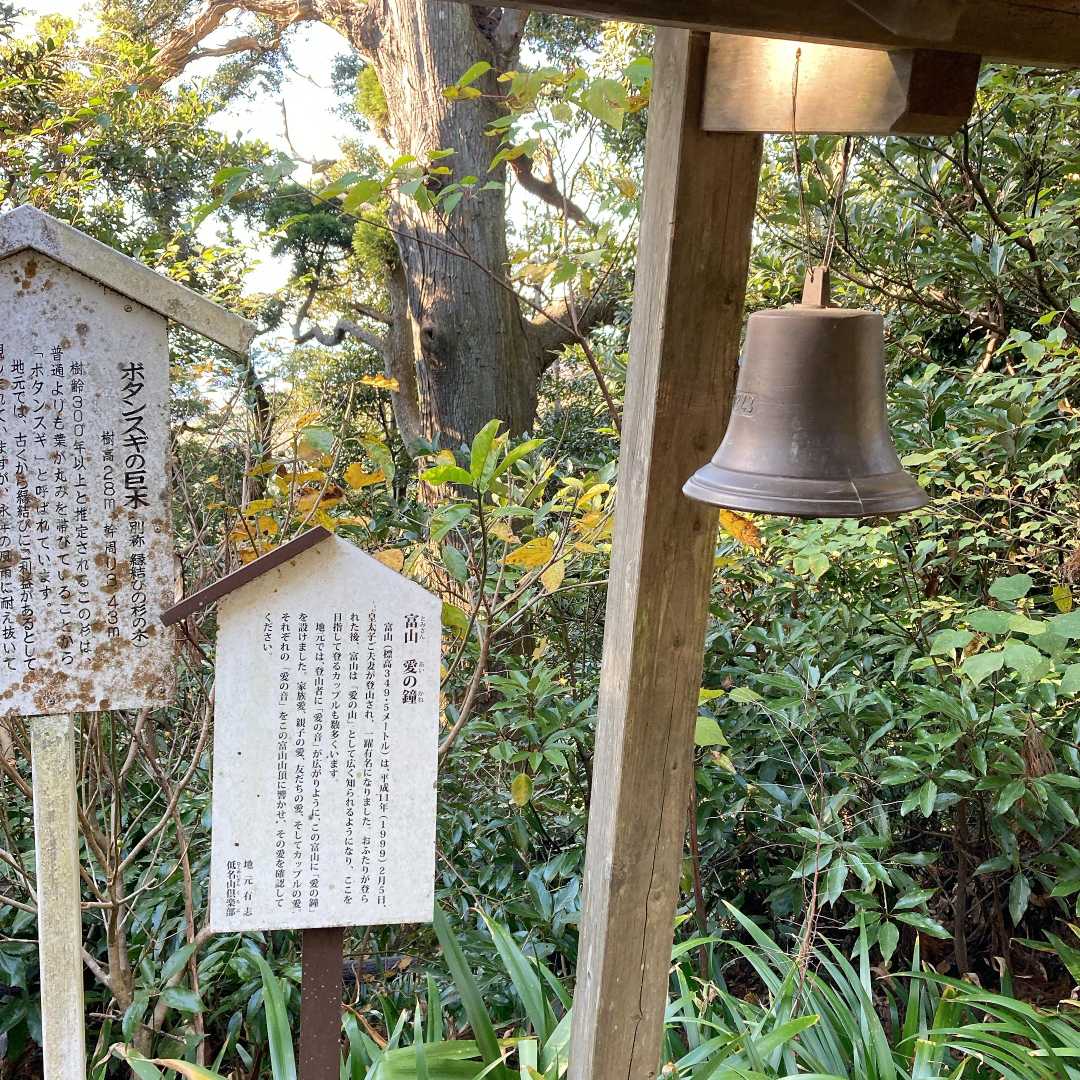 ボタンスギの巨木(別称 縁結びの杉の木)
樹高28m 幹周り3.43m
樹齢300年以上と推定されるこの杉は、
普通よりも葉が丸みを帯びていることから
「ボタンスギ」と呼ばれています。
地元では、古くから縁結びにご利益があるとして
とみさん あい かね
富山 愛の鐘
富山(標高349.5メートル)は、平成11年(1999)2月5日、
皇太子ご夫妻が登山され、一躍有名になりました。おふたりが登ら
れた後、富山は「愛の山」として広く知られるようになり、ここを
目指して登るカップルも数多くいます。
地元では、登山者に「愛の音」が広がりように、この富山に「愛の鐘」
を設けました。家族愛、親子の愛、友だちの愛、そしてカップルの愛、
それぞれの「愛の音」をこの富山山頂に響かせ、その愛を確認して
ください。
地元有志
低名山倶楽部